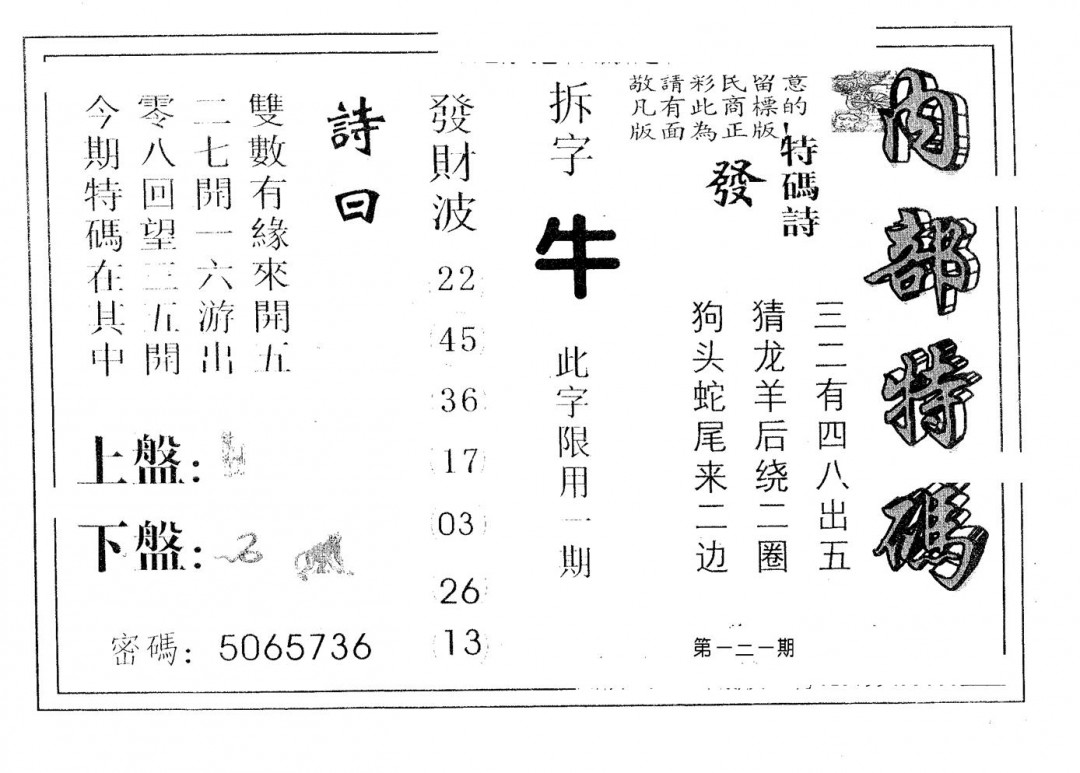 內部特碼
敬請彩民留意
凡有此商標的
版面為正版!
特碼詩
發
三二有四八出五
猜龙羊后绕二圈
狗头蛇尾来二边
第一二一期
拆字
牛
此字限用一期
發財波
22
45
36
17
03
26
13
詩曰
雙數有緣來開五
二七開一六游出
零八回望三五開
今期特碼在其中
上盤:
下盤:
密碼: 5065736